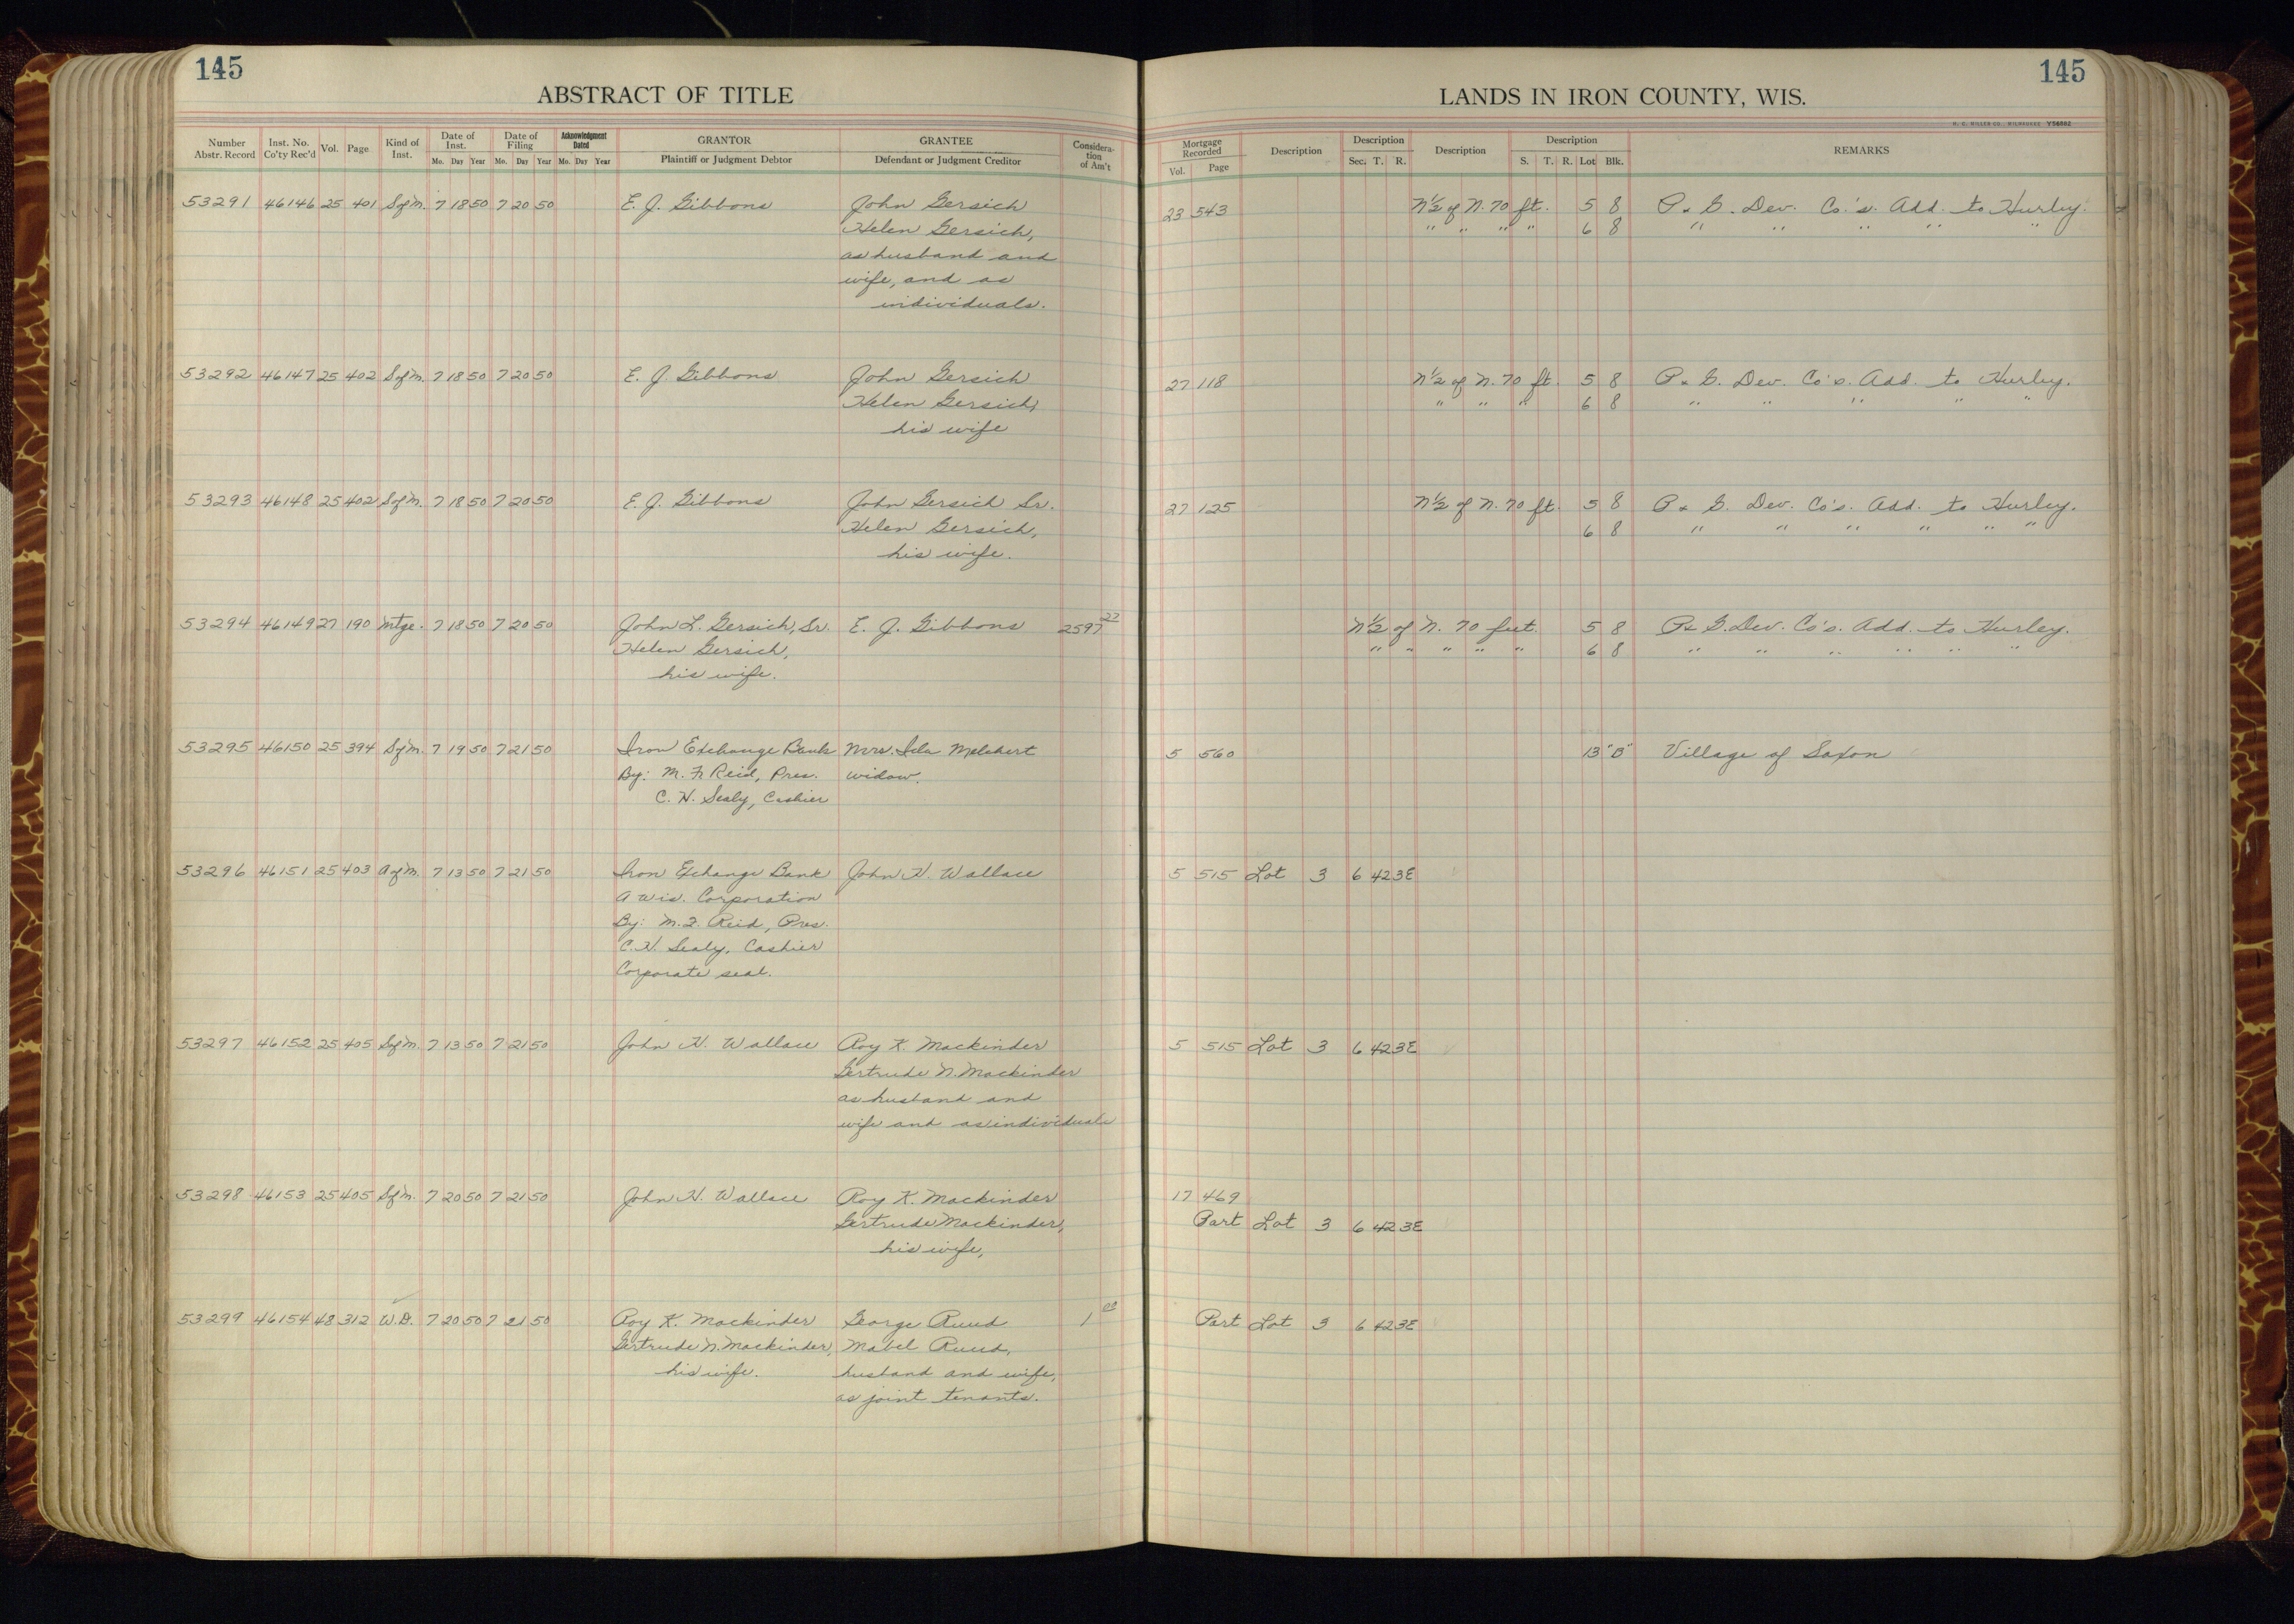 145
ABSTRACT OF TITLE
Number Abstr. Record Inst. No. Co'ty Rec'd Vol. Page Kind of Inst. Date of Inst. Mo. Day Year Date of Filing Mo. Day Year Acknowledgment Dated Mo. Day Year GRANTOR Plaintiff or Judgment Debtor GRANTEE Defendant or Judgment Creditor Considera-tion of Am't
53291 46146 25 401 S of M. 7 18 50 7 20 50 E. J. Gibbons John Gersich
Helen Gersich,
as husband and
wife, and as
individuals.
53292 46147 25 402 S of M. 7 18 50 7 20 50 E. J. Gibbons John Gersich
Helen Gersich,
his wife
53293 46148 25 402 S of M. 7 18 50 7 20 50 E. J. Gibbons John Gersich Sr.
Helen Gersich,
his wife.
53294 46149 27 190 Mtge. 7 18 50 7 20 50 John L. Gersich, Sr. E. J. Gibbons 2597 27
Helen Gersich,
his wife.
53295 46150 25 394 S of M. 7 19 50 7 21 50 Iron Exchange Bank Mrs. Ida Melchert
By: M. F. Reid, Pres. widow.
C. H. Sealy, Cashier
53296 46151 25 403 A of M. 7 13 50 7 21 50 Iron Exchange Bank John H. Wallace
A Wis. Corporation
By: M. F. Reid, Pres.
C. H. Sealy, Cashier
Corporate seal.
53297 46152 25 405 S of M. 7 13 50 7 21 50 John H. Wallace Roy K. Mackinder
Gertrude N. Mackinder
as husband and
wife and as individuals
53298 46153 25 405 S of M. 7 20 50 7 21 50 John H. Wallace Roy K. Mackinder
Gertrude Mackinder,
his wife,
53299 46154 48 312 W.D. 7 20 50 7 21 50 Roy K. Mackinder George Ruud 1 00
Gertrude N. Mackinder, Mabel Ruud,
his wife. husband and wife,
as joint tenants.
145
LANDS IN IRON COUNTY, WIS.
H. C. MILLER CO., MILWAUKEE Y56882
Mortgage Recorded Vol. Page Description Description Sec. T. R. Description Description S. T. R. Lot Blk. REMARKS
23 543 N½ of N. 70 ft. 5 8 P. & G. Dev. Co.'s. Add. to Hurley.
" " " " 6 8 " " " " "
27 118 N½ of N. 70 ft. 5 8 P. & G. Dev. Co's. Add. to Hurley.
" " " 6 8 " " " " "
27 125 N½ of N. 70 ft. 5 8 P. & G. Dev. Co's. Add. to Hurley.
6 8 " " " " " "
N½ of N. 70 feet. 5 8 P. & G. Dev. Co's. Add. to Hurley.
" " " " " 6 8 " " " " " "
5 560 13 "B" Village of Saxon
5 515 Lot 3 6 42 3E
5 515 Lot 3 6 42 3E
17 469
Part Lot 3 6 42 3E
Part Lot 3 6 42 3E